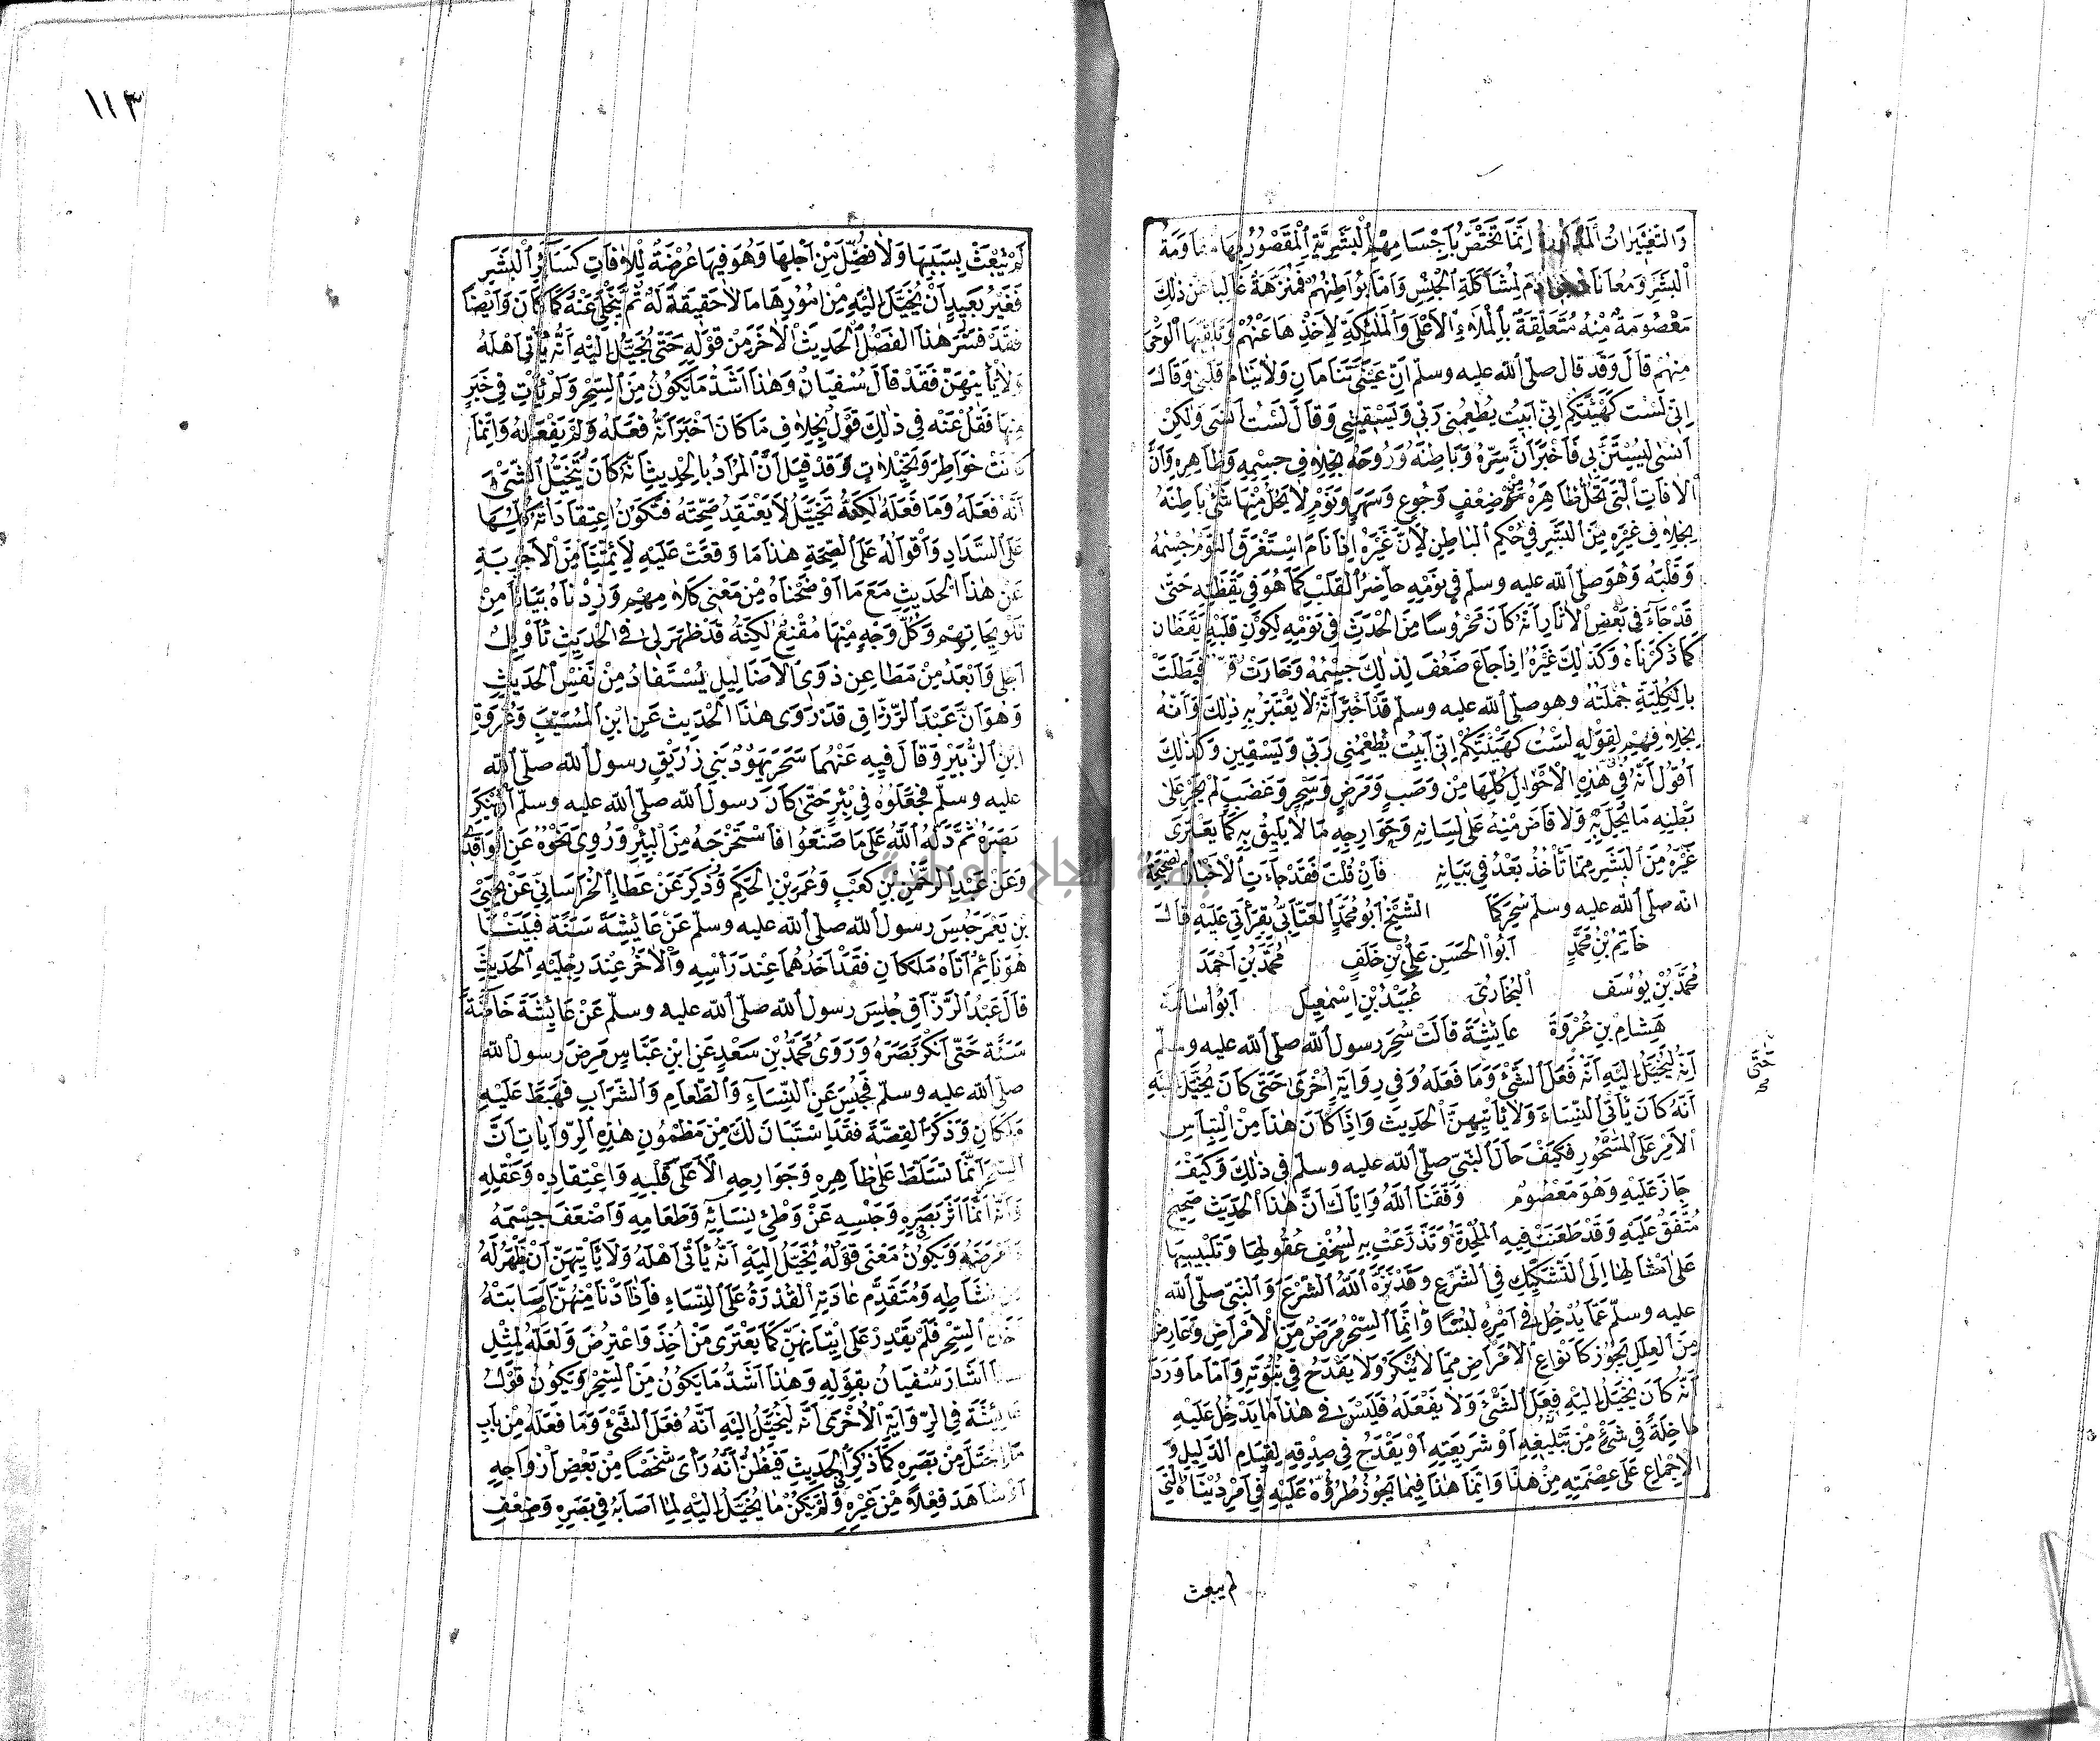 وَالتَغْيِيرَاتُ المذكورة اِنَّمَا تَخْتَصُّ بِاَجْسَامِهِمُ الْبَشَرِيَّةِ الْمَقْصُورِ بِهَا مقاومة
الْبَشَرِ وَمُعَانَاةُ بنى ادَم لِمُشَاكَلَةِ الْجِنْسِ وَاَمَّا بَوَاطِنُهُمْ فَمُنَزَّهَةٌ غَالِبًا عَنْ ذٰلِكَ
مَعْصُومَةٌ مِنْهُ مُتَعَلِّقَةٌ بِالْمَلَاءِ الْاَعْلَى وَالْمَلٰئِكَةِ لِاَخْذِهَا عَنْهُمْ وَتَلَقِّيهَا الْوَحْىَ
مِنْهُم قَالَ وَقَد قال صلّى الله عليه وسلّم اِنَّ عَيْنَىَّ تَنَامَانِ وَلَا يَنَامُ قَلْبِى وَقَالَ
اِنّى لَسْت كَهَيْئَتِكُم اِنّى اَبِيتُ يُطْعِمُنِى رَبّى وَيَسْقِينِى وَقَالَ لَسْتُ اَنْسَى وَلٰكِنْ
اُنَسّٰى لِيُسْتَنَّ بِى فَاَخْبَرَ اَنَّ سِرَّهُ وَبَاطِنَهُ وَرُوحَهُ بِخِلَافِ جِسْمِهِ وَظَاهِرِهِ وَاَنَّ
الْاٰفَاتِ الَّتِى تَحُلُّ ظَاهِرَهُ مِنْ ضَعْفٍ وَجُوعٍ وَسَهَرٍ وَنَوْمٍ لَا يَحُلُّ مِنْهَا شَىْءٌ بَاطِنَهُ
بِخِلَافِ غَيْرِهِ مِنَ الْبَشَرِ فِى حُكْمِ الْبَاطِنِ لِاَنَّ غَيْرَهُ اِذَا نَامَ اسْتَغْرَقَ النَّوْمُ جِسْمَهُ
وَقَلْبَهُ وَهُوَ صلّى الله عليه وسلّم فِى نَوْمِهِ حَاضِرُ الْقَلْبِ كَمَا هُوَ فِى يَقَظَتِهِ حَتّٰى
قَدْ جَاءَ فِى بَعْضِ الْاٰثَارِ اَنَّهُ كَانَ مَحْرُوسًا مِنَ الْحَدَثِ فِى نَوْمِهِ لِكَوْنِ قَلْبِهِ يَقْظَان
كَمَا ذَكَرْنَاهُ وَكَذٰلِكَ غَيْرُهُ اِذَا جَاعَ ضَعُفَ لِذٰلِكَ جِسْمُهُ وَخَارَتْ قوّته فَبَطَلَتْ
بِالْكُلِّيَّةِ جُمْلَتُهُ وهو صلّى الله عليه وسلّم قَدْ اَخْبَرَ اَنَّهُ لَا يَعْتَبِرُ بِهِ ذٰلِكَ وَاَنَّهُ
بِخِلَافِهِمْ لِقَوْلِهِ لَسْتُ كَهَيْئَتِكُمْ اِنّى اَبِيتُ يُطْعِمُنِى رَبّى وَيَسْقِينِ وَكَذٰلِكَ
اَقُولُ اَنَّهُ فِى هٰذِهِ الْاَحْوَالِ كُلِّهَا مِنْ وَصَبٍ وَمَرَضٍ وَسِحْرٍ وَغَضَبٍ لَمْ يَجْرِ عَلٰى
بَطْنِهِ مَا يُخِلُّ بِهِ وَلَا فَاضَ مِنْهُ عَلٰى لِسَانِهِ وَجَوَارِحِهِ مَا لَا يَلِيقُ بِهِ كَمَا يَعْتَرِى
غَيْرَهُ مِنَ الْبَشَرِ مِمَّا نَأْخُذُ بَعْدُ فِى بَيَانِهِ فَاِنْ قُلْتَ فَقَدْ جَاءَتِ الْاَخْبَارُ الصَّحِيحَةُ
انه صلّى الله عليه وسلم سُحِرَ كَمَا الشَّيْخُ اَبُو مُحَمَّدٍ الْعَتَّابِىُّ بِقِرَأَتِى عَلَيْهِ قَالَ
حَاتِمُ بْنُ مُحَمَّدٍ اَبُو الْحَسَنِ عَلِىُّ بْنُ خَلَفٍ مُحَمَّدُ بْنُ اَحْمَدَ
مُحَمَّدُ بْنُ يُوسُفَ الْبُخَارِىُّ عُبَيْدُ بْنُ اِسْمٰعِيلَ اَبُو اُسَامَةَ
هِشَامِ بْنِ عُرْوَةَ عَائِشَةَ قَالَتْ سُحِرَ رسول الله صلّى الله عليه وسلّم
حَتَّى
اِنَّهُ لَيُخَيَّلُ اِلَيْهِ اَنَّهُ فَعَلَ الشَّىْءَ وَمَا فَعَلَهُ وَفِى رِوَايَةٍ اُخْرٰى حَتّٰى كَانَ يُخَيَّلُ اِلَيْهِ
اَنَّهُ كَانَ يَأْتِى النِّسَاءَ وَلَا يَأْتِيهِنَّ الْحَدِيثَ وَاِذَا كَانَ هٰذَا مِنْ الْتِبَاسِ
الْاَمْرِ عَلَى الْمَسْحُورِ فَكَيْفَ حَالُ النَّبِىِّ صلّى الله عليه وسلّم فِى ذٰلِكَ وَكَيْفَ
جَازَ عَلَيْهِ وَهُوَ مَعْصُومٌ وَفَّقَنَا اللّٰهُ وَاِيَّاكَ اَنَّ هٰذَا الْحَدِيثَ صَحِيحٌ
مُتَّفَقٌ عَلَيْهِ وَقَدْ طَعَنَتْ فِيهِ الْمُلْحِدَةُ وَتَذَرَّعَتْ بِهِ لِسُخْفِ عُقُولِهَا وَتَلْبِيسِهَا
عَلٰى اَمْثَالِهَا اِلَى التَّشْكِيكِ فِى الشَّرْعِ وَقَدْ نَزَّهَ اللّٰهُ الشَّرْعَ وَالنَّبِىَّ صلّى الله
عليه وسلّم عَمَّا يُدْخِلُ فِى اَمْرِهِ لَبْسًا وَاِنَّمَا السِّحْرُ مَرَضٌ مِنَ الْاَمْرَاضِ وَعَارِضٌ
مِنَ الْعِلَلِ يَجُوزُ كَاَنْوَاعِ الْاَمْرَاضِ مِمَّا لَا يُنْكَرُ وَلَا يَقْدَحُ فِى نُبُوَّتِهِ وَاَمَّا مَا وَرَدَ
اَنَّهُ كَانَ يُخَيَّلُ اِلَيْهِ فَعَلَ الشَّىْءَ وَلَا يَفْعَلُهُ فَلَيْسَ فِى هٰذَا مَا يَدْخُلُ عَلَيْهِ
دَاخِلَةً فِى شَىْءٍ مِنْ تَبْلِيغِهِ اَوْ شَرِيعَتِهِ اَوْ يَقْدَحُ فِى صِدْقِهِ لِقِيَامِ الدَّلِيلِ وَ
الْاِجْمَاعِ عَلٰى عِصْمَتِهِ مِنْ هٰذَا وَاِنَّمَا هٰذَا فِيمَا يَجُوزُ طُرُوُّهُ عَلَيْهِ فِى اَمْرِ دُنْيَاهُ الَّتِى
لم يبعث
١١٣
لَمْ يُبْعَثْ بِسَبَبِهَا وَلَا فُضِّلَ مِنْ اَجْلِهَا وَهُوَ فِيهَا عُرْضَةٌ لِلْاٰفَاتِ كَسَائِرِ الْبَشَرِ
فَغَيْرُ بَعِيدٍ اَنْ يُخَيَّلَ اِلَيْهِ مِنْ اُمُورِهَا مَا لَا حَقِيقَةَ لَهُ ثُمَّ يَنْجَلِى عَنْهُ كَمَا كَانَ وَاَيْضًا
فَقَدْ فَسَّرَ هٰذَا الْفَصْلَ الْحَدِيثُ الْاٰخَرُ مِنْ قَوْلِهِ حَتّٰى يُخَيَّلَ اِلَيْهِ اَنَّهُ يَأْتِى اَهْلَهُ
وَلَا يَأْتِيهِنَّ فَقَدْ قَالَ سُفْيَانُ وَهٰذَا اَشَدُّ مَا يَكُونُ مِنَ السِّحْرِ وَلَمْ يَأْتِ فِى خَبَرٍ
مِنْهَا نُقِلَ عَنْهُ فِى ذٰلِكَ قَوْلٌ بِخِلَافِ مَا كَانَ اَخْبَرَ اَنَّهُ فَعَلَهُ وَلَمْ يَفْعَلْهُ وَاِنَّمَا
كَانَتْ خَوَاطِرَ وَتَخْيِيلَاتٍ وَقَدْ قِيلَ اَنَّ الْمُرَادَ بِالْحَدِيثِ اَنَّهُ كَانَ يَتَخَيَّلُ الشَّىْءَ
اَنَّهُ فَعَلَهُ وَمَا فَعَلَهُ لٰكِنَّهُ تَخَيُّلٌ لَا يَعْتَقِدُ صِحَّتَهُ فَتَكُونُ اعْتِقَادَاتُهُ كُلُّهَا
عَلَى السَّدَادِ وَاَقْوَالُهُ عَلَى الصِّحَّةِ هٰذَا مَا وَقَعَتْ عَلَيْهِ لِاَئِمَّتِنَا مِنَ الْاَجْوِبَةِ
عَنْ هٰذَا الْحَدِيثِ مَعَ مَا اَوْضَحْنَاهُ مِنْ مَعْنٰى كَلَامِهِمْ وَزِدْنَاهُ بَيَانًا مِنْ
تَلْوِيحَاتِهِمْ وَكُلُّ وَجْهٍ مِنْهَا مُقْنِعٌ لٰكِنَّهُ قَدْ ظَهَرَ لِى فِى الْحَدِيثِ تَأْوِيلٌ
اَجْلٰى وَاَبْعَدُ مِنْ مَطَاعِنِ ذَوِى الْاَضَالِيلِ يُسْتَفَادُ مِنْ نَفْسِ الْحَدِيثِ
وَهُوَ اَنَّ عَبْدَ الرَّزَّاقِ قَدْ رَوَى هٰذَا الْحَدِيثَ عَنِ ابْنِ الْمُسَيِّبِ وَعُرْوَةَ
ابْنِ الزُّبَيْرِ وَقَالَ فِيهِ عَنْهُمَا سَحَرَ يَهُودُ بَنِى زُرَيْقٍ رسول الله صلّى الله
عليه وسلّم فَجَعَلُوهُ فِى بِئْرٍ حَتّٰى كَادَ رسول الله صلّى الله عليه وسلّم اَنْ يُنْكِرَ
بَصَرَهُ ثُمَّ دَلَّهُ اللّٰهُ عَلٰى مَا صَنَعُوا فَاسْتَخْرَجَهُ مِنَ الْبِئْرِ وَرُوِىَ نَحْوُهُ عَنِ الْوَاقِدِىِّ
وَعَنْ عَبْدِ الرَّحْمٰنِ بْنِ كَعْبٍ وَعُمَرَ بْنِ الْحَكَمِ وَذُكِرَ عَنْ عَطَاءِ الْخُرَاسَانِىِّ عَنْ يَحْيَى
بْنِ يَعْمَرَ حُبِسَ رسول الله صلّى الله عليه وسلّم عَنْ عَائِشَةَ سَنَةً فَبَيْنَا
هُوَ نَائِمٌ اَتَاهُ مَلَكَانِ فَقَعَدَ اَحَدُهُمَا عِنْدَ رَأْسِهِ وَالْاٰخَرُ عِنْدَ رِجْلَيْهِ الْحَدِيثَ
قَالَ عَبْدُ الرَّزَّاقِ حُبِسَ رسول الله صلّى الله عليه وسلّم عَنْ عَائِشَةَ خَاصَّةً
سَنَةً حَتّٰى اَنْكَرَ بَصَرَهُ وَرَوَى مُحَمَّدُ بْنُ سَعْدٍ عَنِ ابْنِ عَبَّاسٍ مَرِضَ رسول الله
صلّى الله عليه وسلّم فَحُبِسَ عَنِ النِّسَاءِ وَالطَّعَامِ وَالشَّرَابِ فَهَبَطَ عَلَيْهِ
مَلَكَانِ وَذَكَرَ الْقِصَّةَ فَقَدِ اسْتَبَانَ لَكَ مِنْ مَضْمُونِ هٰذِهِ الرِّوَايَاتِ اَنَّ
السِّحْرَ اِنَّمَا تَسَلَّطَ عَلٰى ظَاهِرِهِ وَجَوَارِحِهِ لَا عَلٰى قَلْبِهِ وَاعْتِقَادِهِ وَعَقْلِهِ
وَاَنَّهُ اِنَّمَا اَثَّرَ بَصَرِهِ وَحَبْسِهِ عَنْ وَطْىِ نِسَائِهِ وَطَعَامِهِ وَاَضْعَفَ جِسْمَهُ
وَاَمْرَضَهُ وَيَكُونُ مَعْنَى قَوْلِهِ يُخَيَّلُ اِلَيْهِ اَنَّهُ يَأْتِى اَهْلَهُ وَلَا يَأْتِيهِنَّ اَنْ يَظْهَرَ لَهُ
مِنْ نَشَاطِهِ وَمُتَقَدَّمِ عَادَتِهِ الْقُدْرَةُ عَلَى النِّسَاءِ فَاِذَا دَنَا مِنْهُنَّ اَصَابَتْهُ
السِّحْرِ فَلَمْ يَقْدِرْ عَلٰى اِتْيَانِهِنَّ كَمَا يَعْتَرِى مَنْ اُخِذَ وَاعْتُرِضَ وَلَعَلَّهُ لِمِثْلِ
هٰذَا اَشَارَ سُفْيَانُ بِقَوْلِهِ وَهٰذَا اَشَدُّ مَا يَكُونُ مِنَ السِّحْرِ وَيَكُونُ قَوْلُ
عَائِشَةَ فِى الرِّوَايَةِ الْاُخْرٰى اَنَّهُ لَيُخَيَّلُ اِلَيْهِ اَنَّهُ فَعَلَ الشَّىْءَ وَمَا فَعَلَهُ مِنْ بَابِ
مَا اخْتَلَّ مِنْ بَصَرِهِ كَمَا ذُكِرَ الْحَدِيثِ فَيَظُنُّ اَنَّهُ رَأَى شَخْصًا مِنْ بَعْضِ اَزْوَاجِهِ
اَوْ شَاهَدَ فِعْلًا مِنْ غَيْرِهِ وَلَمْ يَكُنْ مَا يُخَيَّلُ اِلَيْهِ لِمَا اَصَابَهُ فِى بَصَرِهِ وَضَعْفِ